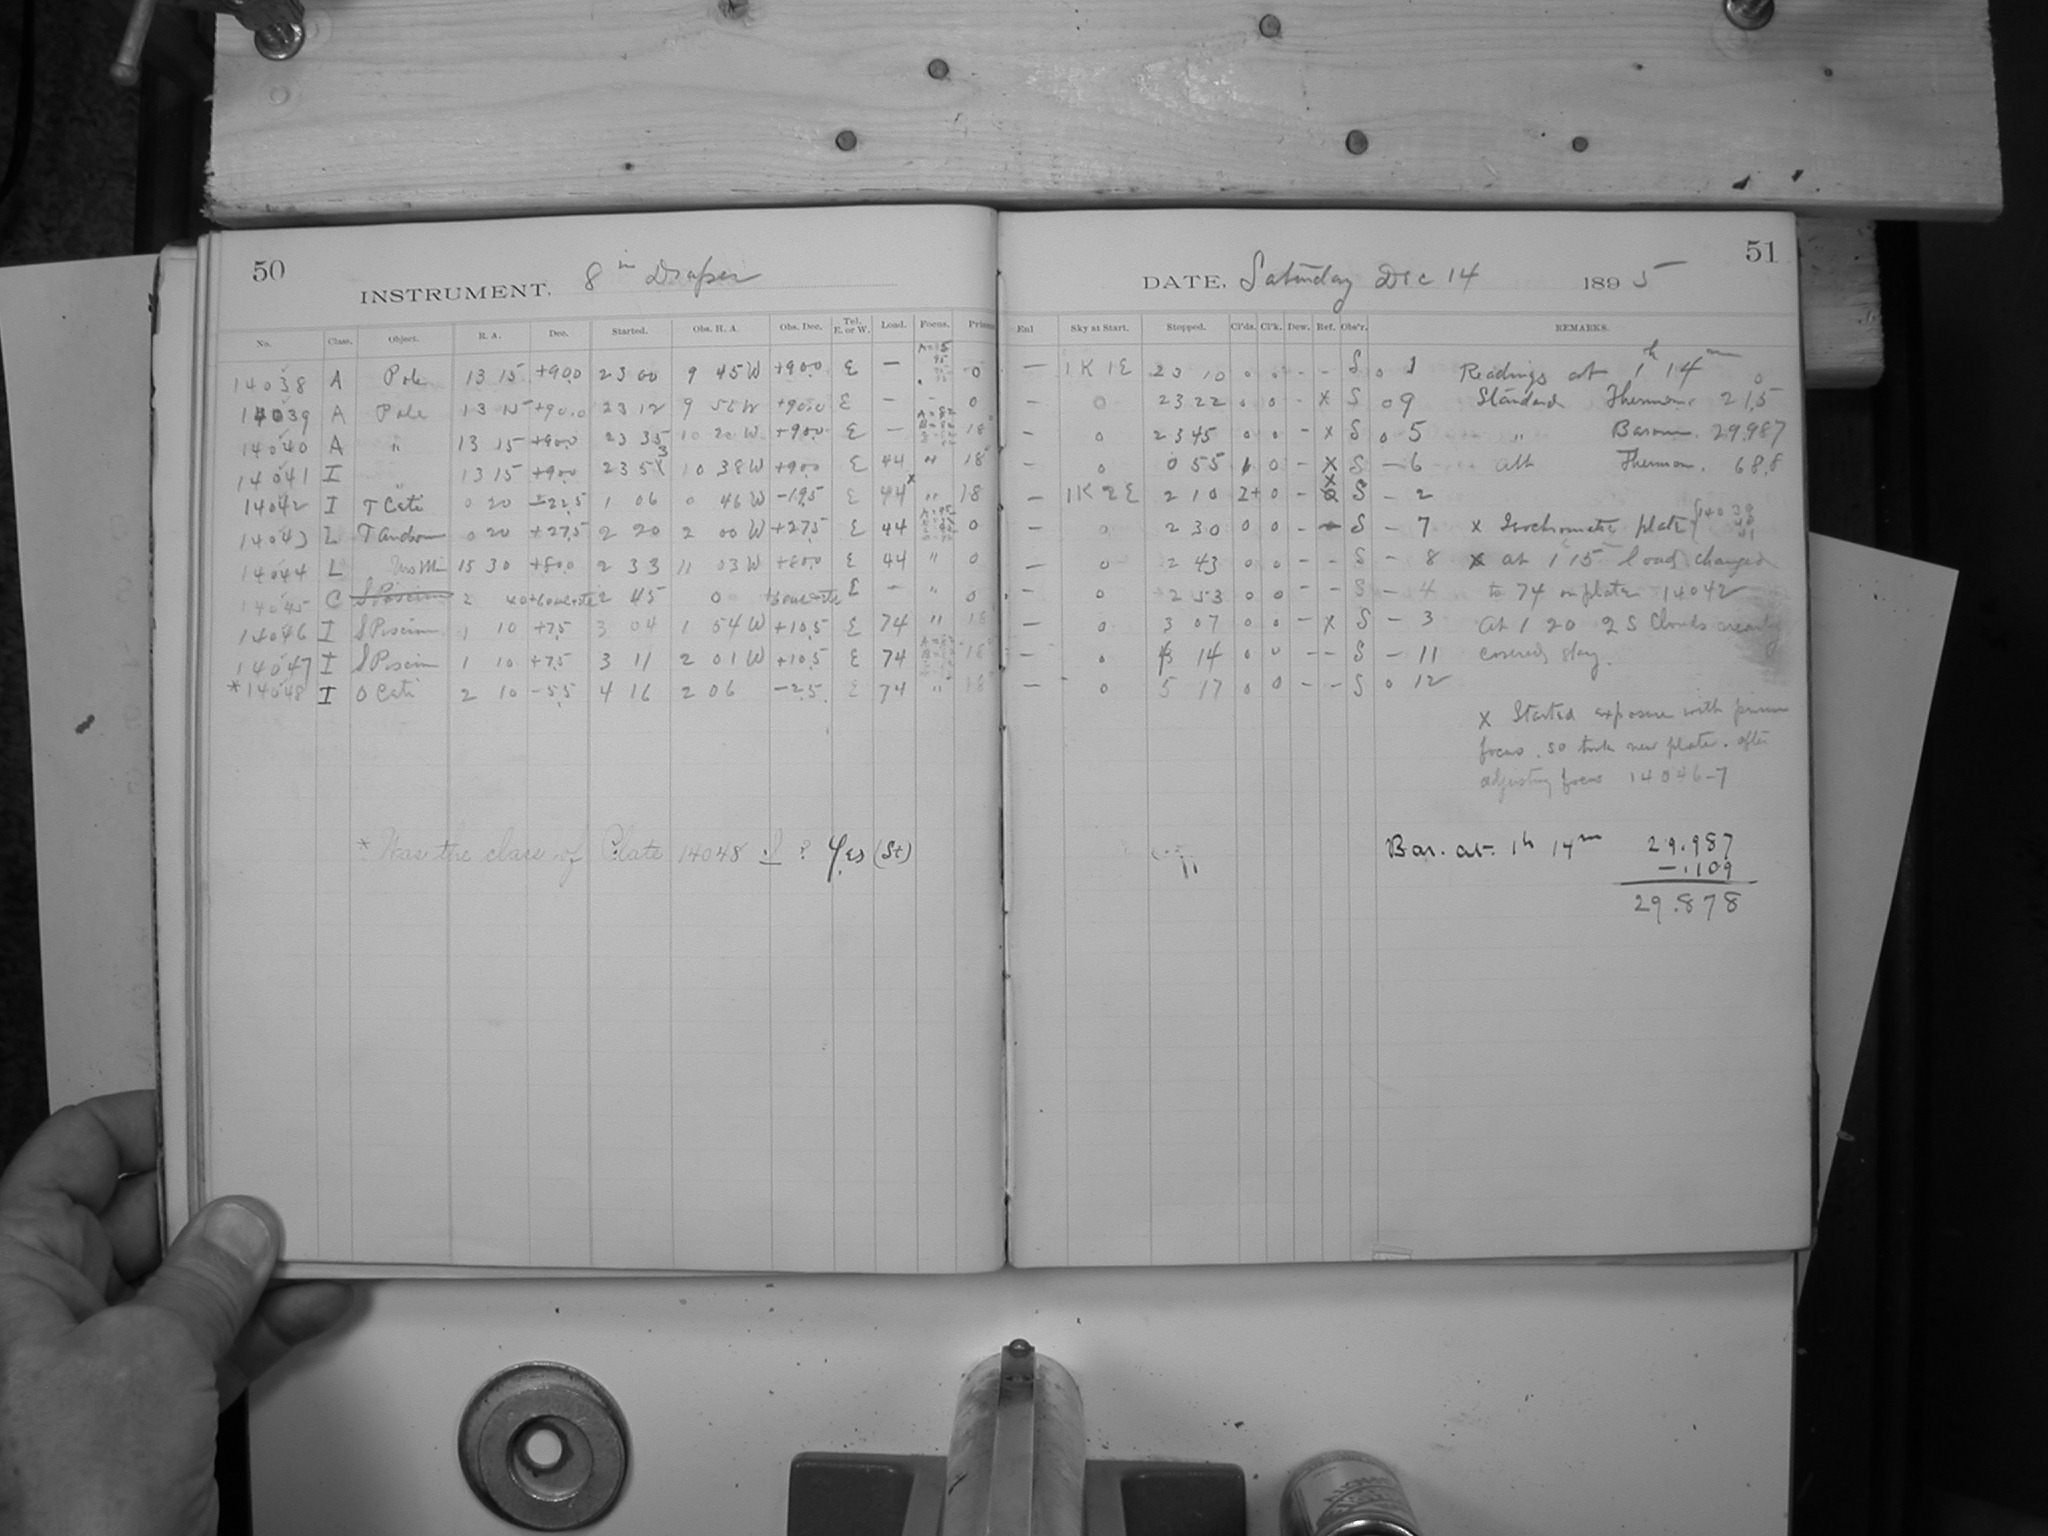 50
INSTRUMENT. 8 in Draper
No. Class. Object. R. A. Dec. Started. Obs. H. A. Obs. Dec. Tel. E. or W. Load. Focus. Prism
14038 A Pole 13 15 +90.0 23 00 9 45 W +90.0 E — 0
14039 A Pole 13 15 +90.0 23 12 9 56 W +90.0 E — - 0
14040 A " 13 15 +90.0 23 35 10 20 W +90.0 E — 18
14041 I " 13 15 +90.0 23 53 10 38 W +90.0 E 44 " 18
14042 I T Ceti 0 20 -22.5 1 06 0 46 W -19.5 E 44 x " 18
14043 L T Androm 0 20 +27.5 2 20 2 00 W +27.5 E 44 0
14044 L Urs Min 15 30 +80.0 2 33 11 03 W +80.0 E 44 " 0
14045 C S Piscium 2 40 2 45 0 E — " 0
14046 I S Piscium 1 10 +7.5 3 04 1 54 W +10.5 E 74 " 18
14047 I S Piscium 1 10 +7.5 3 11 2 01 W +10.5 E 74 18
* 14048 I O Ceti 2 10 -5.5 4 16 2 06 -2.5 E 74 " 18
* Was the class of Plate 14048 I ? Yes (St)
51
DATE, Saturday Dec 14 1895
Enl Sky at Start. Stopped. Cl'ds. Cl'k. Dew. Ref. Obs'r. REMARKS.
— 1K 1E 23 10 0 0 - - S 0 1 Readings at 1h 14m
- 0 23 22 0 0 - x S 0 9 Standard Thermom. 21.5
- 0 23 45 0 0 - x S 0 5 " Barom. 29.987
- 0 0 55 1 0 - x S - 6 att Thermom. 68.8
— 1K 2E 2 10 2+ 0 - x S - 2
- 0 2 30 0 0 - - S - 7 x Isochromatic plate 14039 40 41
— 0 2 43 0 0 - - S - 8 x at 1 15 load changed
- 0 2 53 0 0 - - S - 4 to 74 on plate 14042
— 0 3 07 0 0 - x S - 3 At 1 20 2 S Clouds nearly
— 0 3 14 0 0 - - S - 11 covered sky.
— 0 5 17 0 0 - - S 0 12
x Started exposure with prism
focus. so took new plate. after
adjusting focus 14046-7
Bar. at 1h 14m 29.987
-.109
29.878